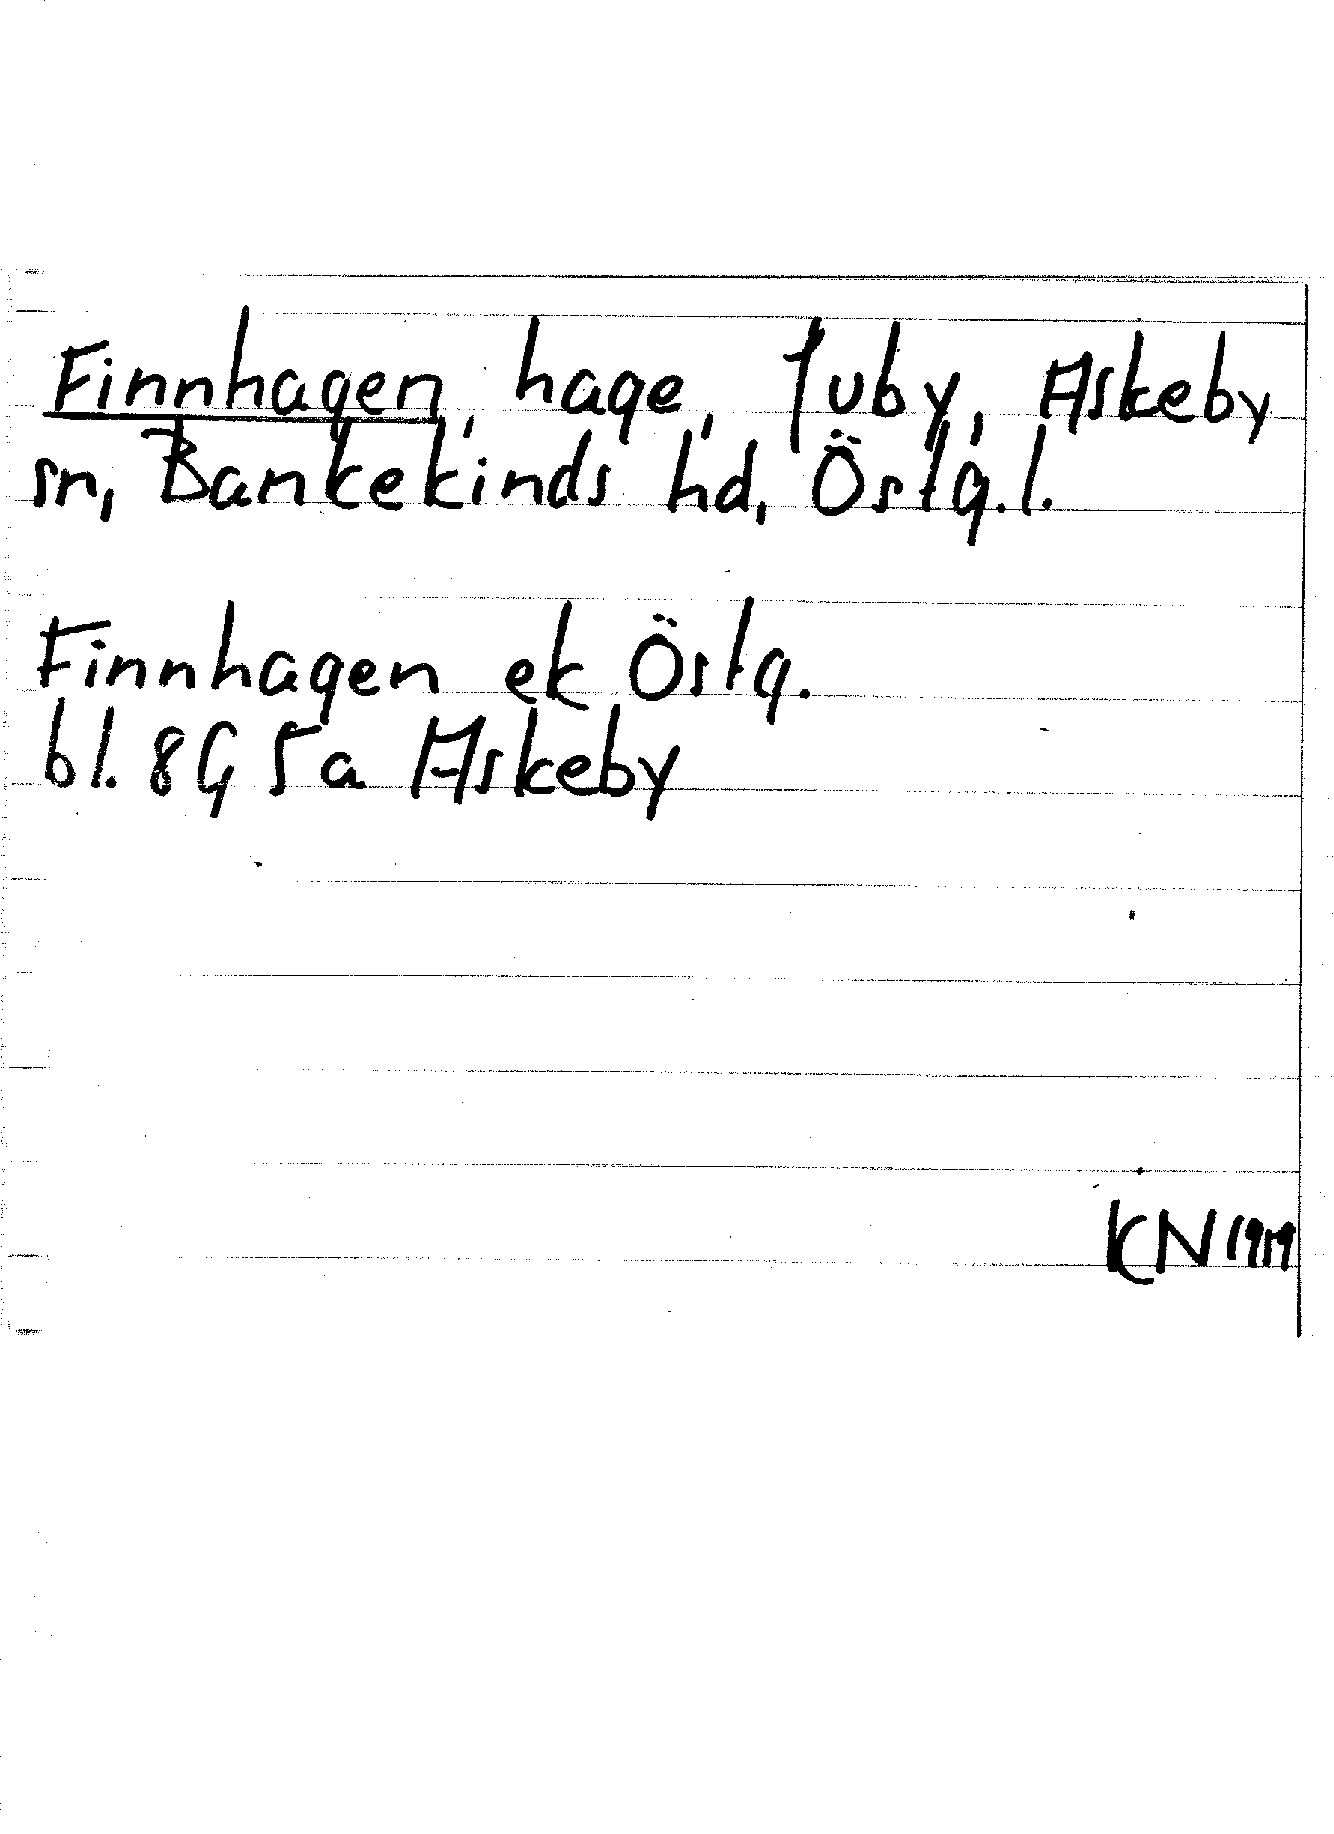 Finnhagen, hage, Juby, Askeby
sn, Bankekinds hd, Östg.l.
Finnhagen ek Östg.
bl. 8G 5a Askeby
KN